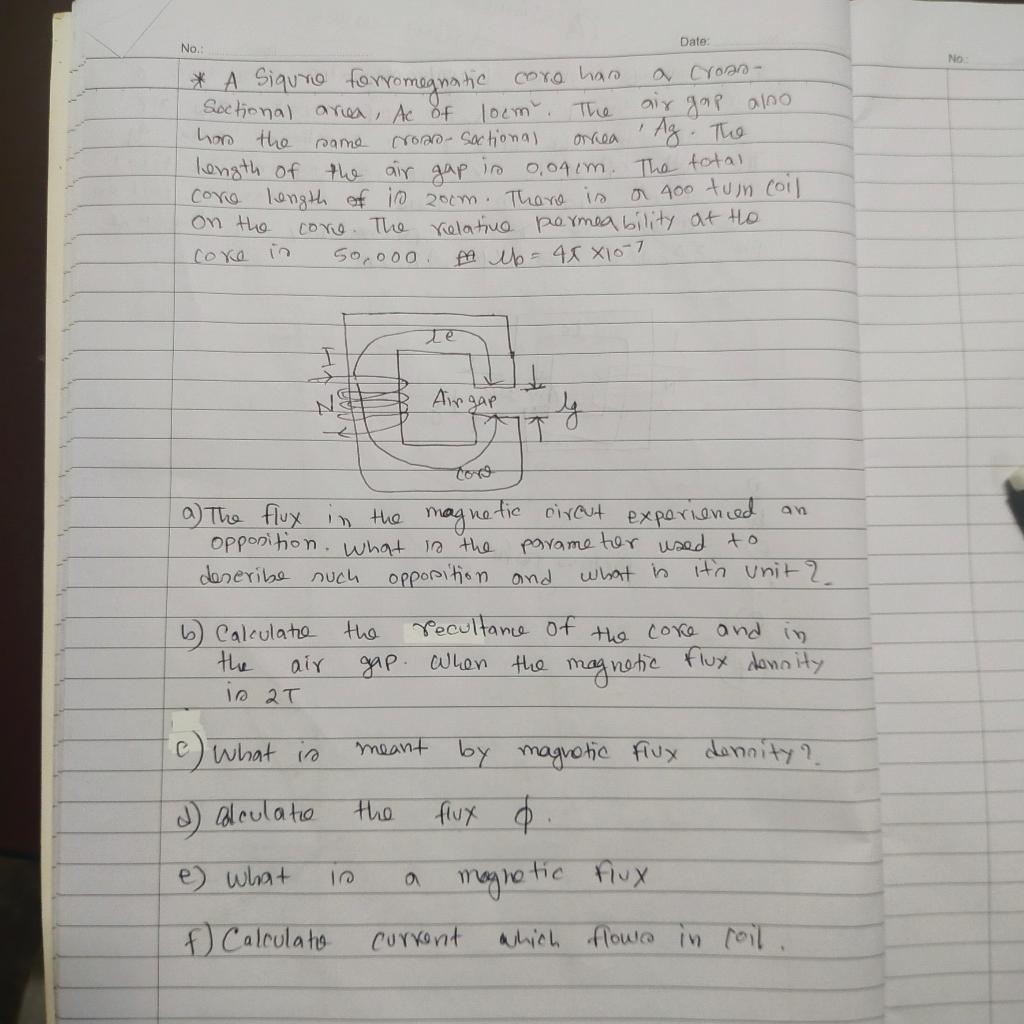 No.:
Date:
No.:
* A Siqure ferromegnatic core has a cross-
Sectional area, Ac of 10cm². The air gap also
has the same cross-Sectional area, Ag. The
length of the air gap is 0,04cm. The total
core length of is 20cm. There is a 400 turn coil
on the core. The relative permeability at the
core is 50,000. μo = 4π ×10⁻⁷
lc
I
N
Air gap
lg
core
a) The flux in the magnetic circut experienced an
opposition. What is the parameter used to
describe such opposition and what is it's unit?
b) Calculate the recultance of the core and in
the air gap. When the magnetic flux density
is 2T
c) What is meant by magnetic flux density?
d) Calculate the flux ϕ.
e) What is a magnetic flux
f) Calculate current which flows in coil.